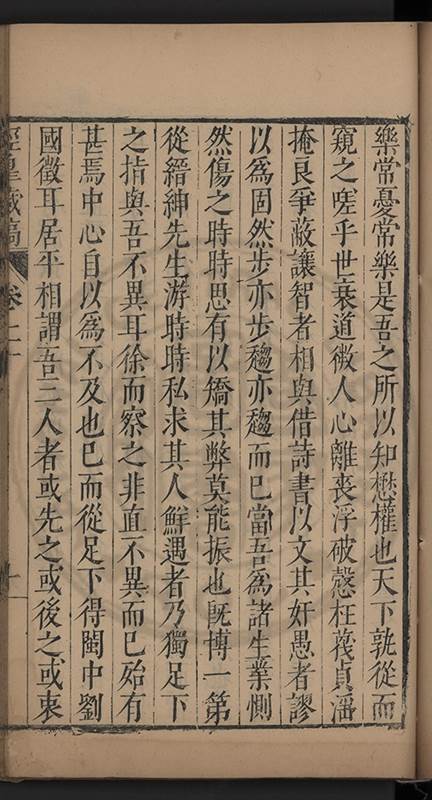 樂常憂常樂是吾之所以知懋權也天下孰從而
窺之嗟乎世衰道微人心離喪浮破愨枉茂貞淫
掩良爭蔽讓智者相與借詩書以文其奸愚者謬
以為固然步亦步趨亦趨而已當吾為諸生業惻
然傷之時時思有以矯其弊莫能振也既博一第
從縉紳先生游時時私求其人鮮遇者乃獨足下
之指與吾不異耳徐而察之非直不異而已殆有
甚焉中心自以為不及也已而從足下得閩中劉
國徵耳居平相謂吾三人者或先之或後之或衷
涇臯藏稿 卷二十 十一